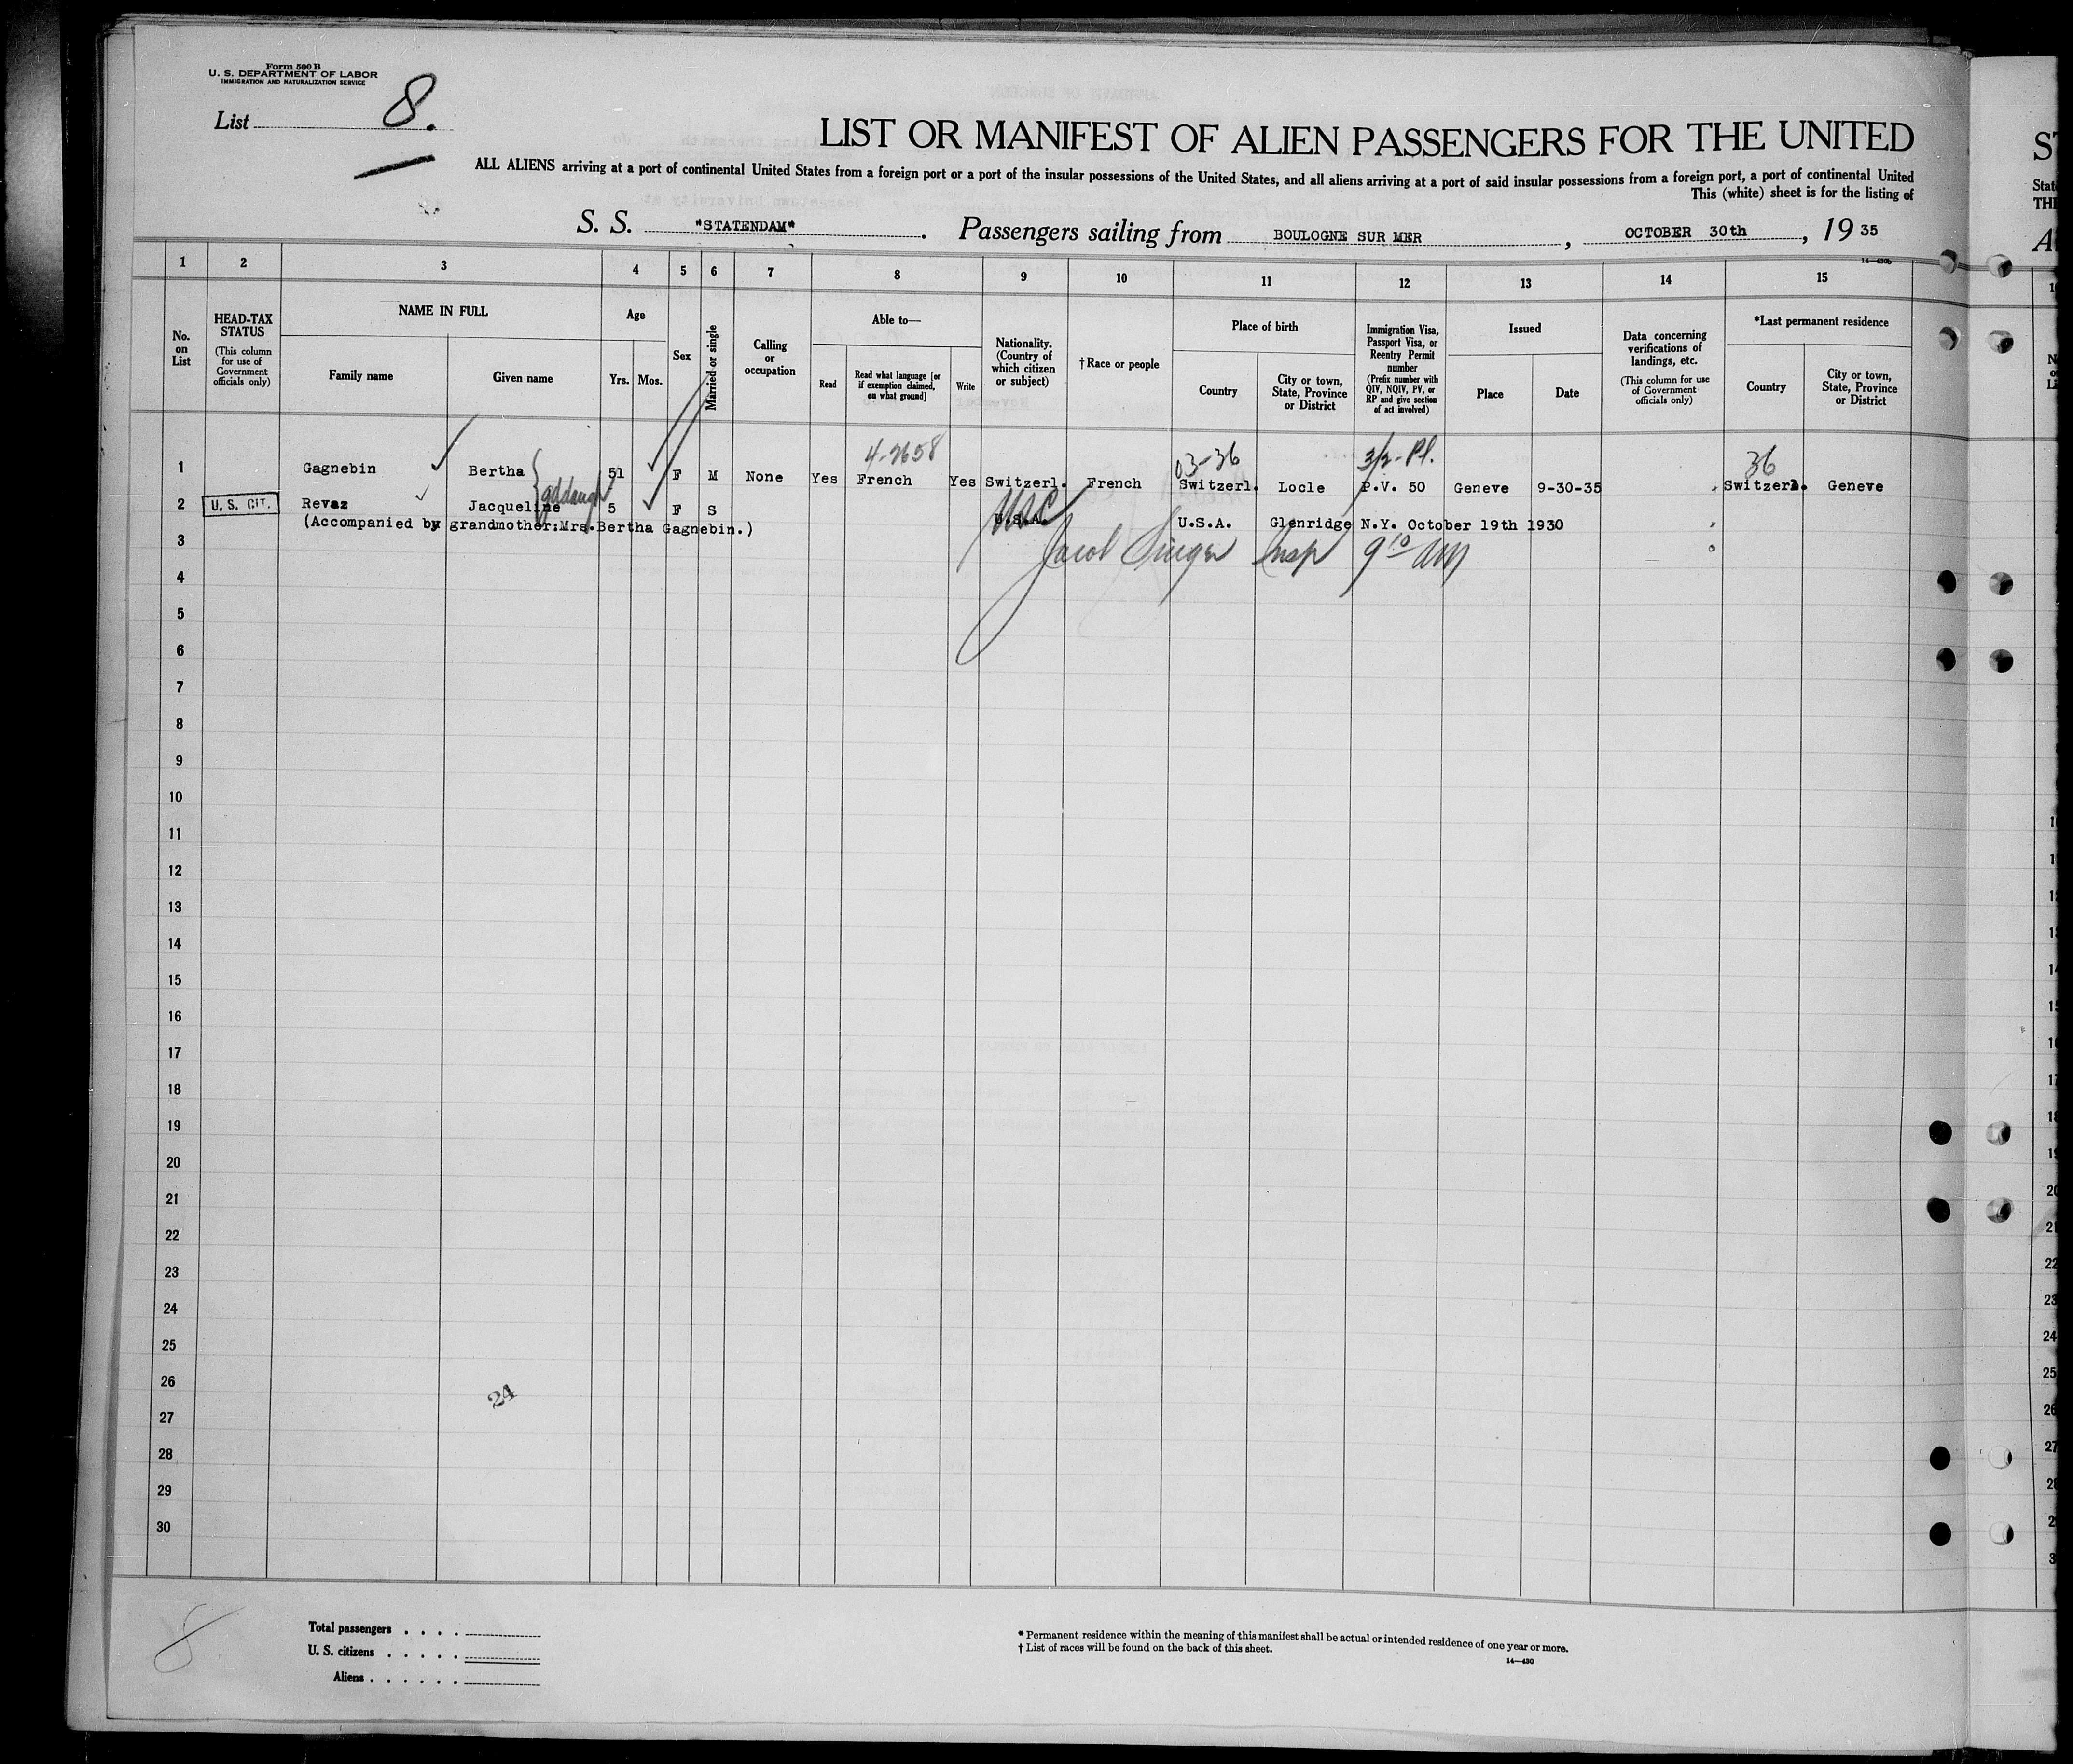 Form 500 B
U. S. DEPARTMENT OF LABOR
IMMIGRATION AND NATURALIZATION SERVICE
List 8.
LIST OR MANIFEST OF ALIEN PASSENGERS FOR THE UNITED
ALL ALIENS arriving at a port of continental United States from a foreign port or a port of the insular possessions of the United States, and all aliens arriving at a port of said insular possessions from a foreign port, a port of continental United
This (white) sheet is for the listing of
S. S. "STATENDAM". Passengers sailing from BOULOGNE SUR MER, OCTOBER 30th, 1935
14—430b
1 2 3 4 5 6 7 8 9 10 11 12 13 14 15
No. on List
HEAD-TAX STATUS
(This column for use of Government officials only)
NAME IN FULL
Family name
Given name
Age
Yrs. Mos.
Sex
Married or single
Calling or occupation
Able to—
Read
Read what language [or if exemption claimed, on what ground]
Write
Nationality. (Country of which citizen or subject)
†Race or people
Place of birth
Country
City or town, State, Province or District
Immigration Visa, Passport Visa, or Reentry Permit number
(Prefix number with QIV, NQIV, PV, or RP and give section of act involved)
Issued
Place
Date
Data concerning verifications of landings, etc.
(This column for use of Government officials only)
*Last permanent residence
Country
City or town, State, Province or District
4-2658 03-36 3/2-Pl. 36
1 Gagnebin Bertha 51 F M None Yes French Yes Switzerl. French Switzerl. Locle P.V. 50 Geneve 9-30-35 Switzerl. Geneve
2 U. S. CIT. Revaz Jacqueline gddaugh 5 F S USC U.S.A. U.S.A. Glenridge N.Y. October 19th 1930
(Accompanied by grandmother:Mrs.Bertha Gagnebin.)
3 Jacob Singer Insp 9 10 AM
4
5
6
7
8
9
10
11
12
13
14
15
16
17
18
19
20
21
22
23
24
25
26
24
27
28
29
30
8
Total passengers . . . .
U. S. citizens . . . . .
Aliens . . . . . .
* Permanent residence within the meaning of this manifest shall be actual or intended residence of one year or more.
† List of races will be found on the back of this sheet.
14—430